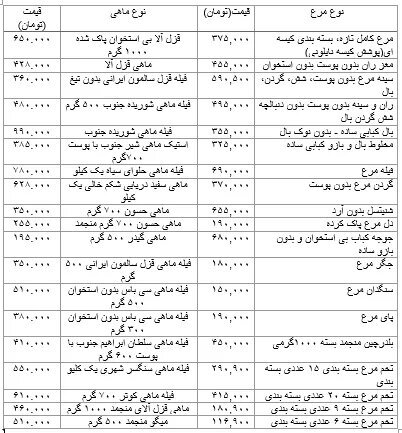 نوع مرغ	قیمت(تومان)	نوع ماهی	قیمت (تومان)
مرغ کامل تازه، بسته بندی کیسه ای(پوشش کیسه نایلونی)	۳۷۵.۰۰۰	قزل آلا بی استخوان پاک شده ۱۰۰۰ گرم	۶۵۰.۰۰۰
مغز ران بدون پوست بدون استخوان	۴۵۵.۰۰۰	ماهی قزل آلا	۴۲۸.۰۰۰
سینه مرغ بدون پوست، شش، گردن، بال	۵۹۰,۵۰۰	فیله قزل سالمون ایرانی بدون تیغ	۳۶۰.۰۰۰
ران و سینه بدون پوست بدون دنبالچه شش گردن بال	۴۹۵.۰۰۰	فیله ماهی شوریده جنوب ۵۰۰ گرم	۴۸۰.۰۰۰
بال کبابی ساده - بدون نوک بال	۳۵۵.۰۰۰	فیله ماهی شوریده جنوب	۹۹۰.۰۰۰
مخلوط بال و بازو کبابی ساده	۳۲۵.۰۰۰	استیک ماهی شیر جنوب با پوست ۷۰۰گرم	۳۸۵.۰۰۰
فیله مرغ	۶۹۰.۰۰۰	فیله ماهی حلوای سیاه یک کیلو	۷۸۰.۰۰۰
گردن مرغ بدون پوست	۳۷۰.۰۰۰	ماهی سفید دریایی شکم خالی یک کیلو	۶۲۸.۰۰۰
شنیتسل بدون آرد	۶۵۵.۰۰۰	ماهی حسون ۷۰۰ گرم	۳۵۰.۰۰۰
دل مرغ پاک کرده	۱۹۰.۰۰۰	ماهی حسون ۷۰۰ گرم منجمد	۲۵۵.۰۰۰
جوجه کباب بی استخوان و بدون بازو ساده	۶۸۰.۰۰۰	ماهی گیدر ۵۰۰ گرم	۱۹۵.۰۰۰
جگر مرغ	۱۸۰.۰۰۰	فیله ماهی قزل سالمون ایرانی ۵۰۰ گرم	۳۵۰.۰۰۰
سنگدان مرغ	۱۵۰.۰۰۰	فیله ماهی سی باس بدون استخوان ۵۰۰ گرم	۵۱۰.۰۰۰
پای مرغ	۱۹۰.۰۰۰	فیله ماهی سی باس بدون استخوان ۳۰۰ گرم	۳۸۰.۰۰۰
بلدرچین منجمد بسته ۱۰۰۰گرمی	۴۵۰.۰۰۰	فیله ماهی سلطان ابراهیم جنوب با پوست ۶۰۰ گرم	۴۱۰.۰۰۰
تخم مرغ بسته بندی ۱۵ عددی بسته بندی	۲۹۰,۹۰۰	فیله ماهی سنگسر شهری یک کلیو	۵۵۰.۰۰۰
تخم مرغ بسته ۲۰ عددی بسته بندی	۴۱۵.۰۰۰	فیله ماهی کوتر ۷۰۰ گرم	۶۱۰.۰۰۰
تخم مرغ بسته ۹ عددی بسته بندی	۱۸۰,۹۰۰	ماهی قزل آلای منجمد ۱۰۰۰ گرم	۴۶۰.۰۰۰
تخم مرغ بسته ۶ عددی بسته بندی	۱۱۶,۹۰۰	میگو منجمد ۵۰۰ گرم	۵۱۰.۰۰۰